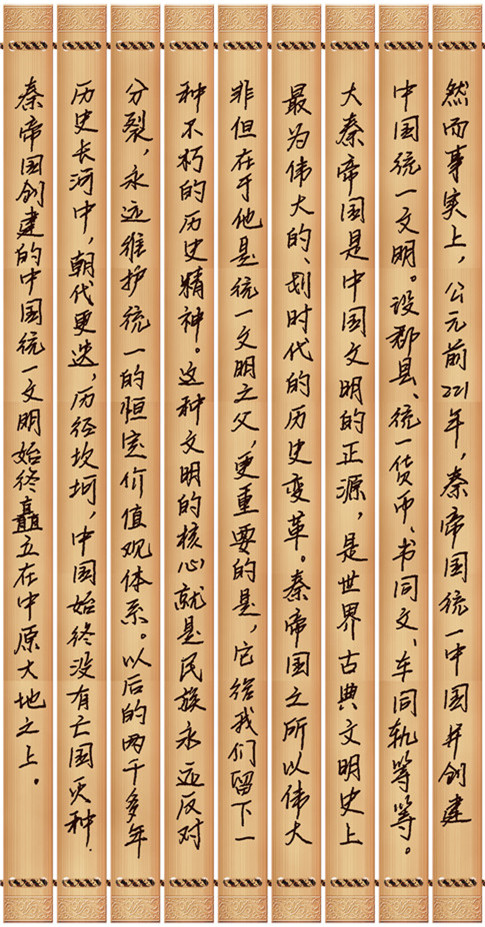 然而事实上，公元前221年，秦帝国统一中国并创建
中国统一文明。设郡县、统一货币、书同文、车同轨等等。
大秦帝国是中国文明的正源，是世界古典文明史上
最为伟大的、划时代的历史变革。秦帝国之所以伟大
非但在于他是统一文明之父，更重要的是，它给我们留下一
种不朽的历史精神。这种文明的核心就是民族永远反对
分裂，永远维护统一的恒定价值观体系。以后的两千多年
历史长河中，朝代更迭，历经坎坷，中国始终没有亡国灭种．
秦帝国创建的中国统一文明始终矗立在中原大地之上。